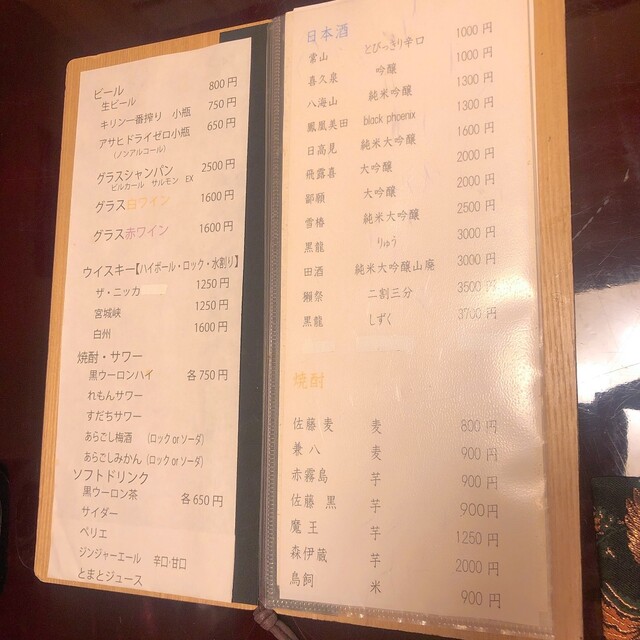 ビール
生ビール 800円
キリン一番搾り 小瓶 750円
アサヒドライゼロ小瓶 650円
(ノンアルコール)
グラスシャンパン 2500円
ビルカール サルモン EX
グラス白ワイン 1600円
グラス赤ワイン 1600円
ウイスキー【ハイボール・ロック・水割り】
ザ・ニッカ 1250円
宮城峡 1250円
白州 1600円
焼酎・サワー
黒ウーロンハイ 各750円
れもんサワー
すだちサワー
あらごし梅酒 (ロック or ソーダ)
あらごしみかん (ロック or ソーダ)
ソフトドリンク
黒ウーロン茶 各650円
サイダー
ペリエ
ジンジャーエール 辛口・甘口
とまとジュース
日本酒
常山 とびっきり辛口 1000円
喜久泉 吟醸 1000円
八海山 純米吟醸 1300円
鳳凰美田 black phoenix 1300円
日高見 純米大吟醸 1600円
飛露喜 大吟醸 2000円
鄙願 大吟醸 2000円
雪椿 純米大吟醸 2500円
黒龍 りゅう 3000円
田酒 純米大吟醸山廃 3000円
獺祭 二割三分 3500円
黒龍 しずく 3700円
焼酎
佐藤 麦 麦 800円
兼八 麦 900円
赤霧島 芋 900円
佐藤 黒 芋 900円
魔王 芋 1250円
森伊蔵 芋 2000円
鳥飼 米 900円